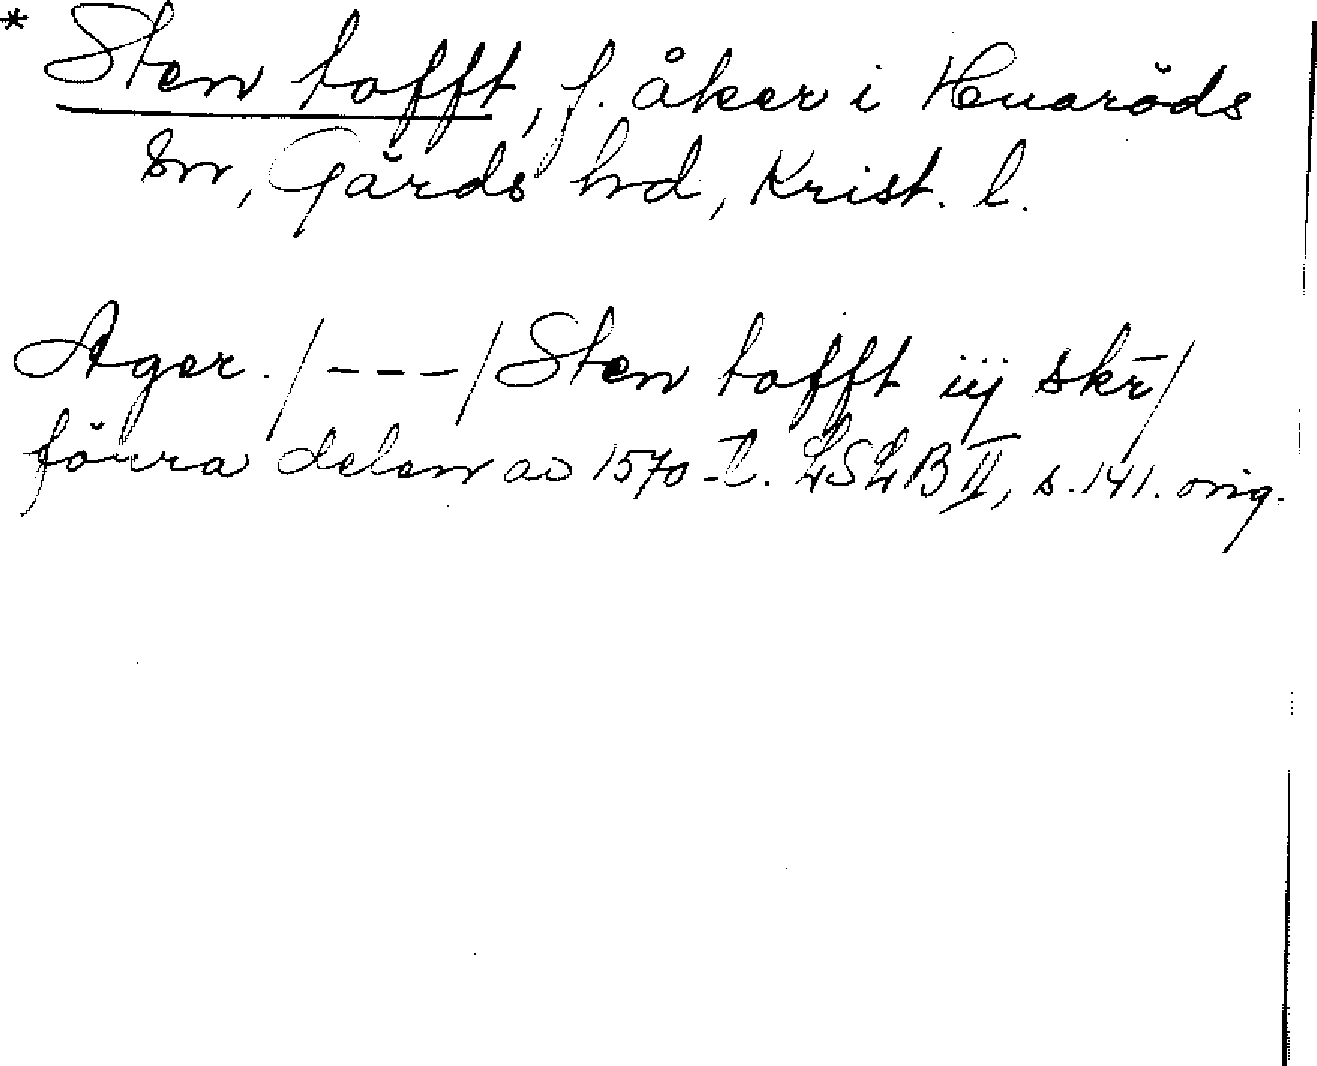 * Sten tofft, f. åker i Huaröds
sn, Gärds hd, Krist. l.
Ager. /---/ Sten tofft iij skr̄/
förra delen av 1570-t. LSLB II, s. 141. orig.